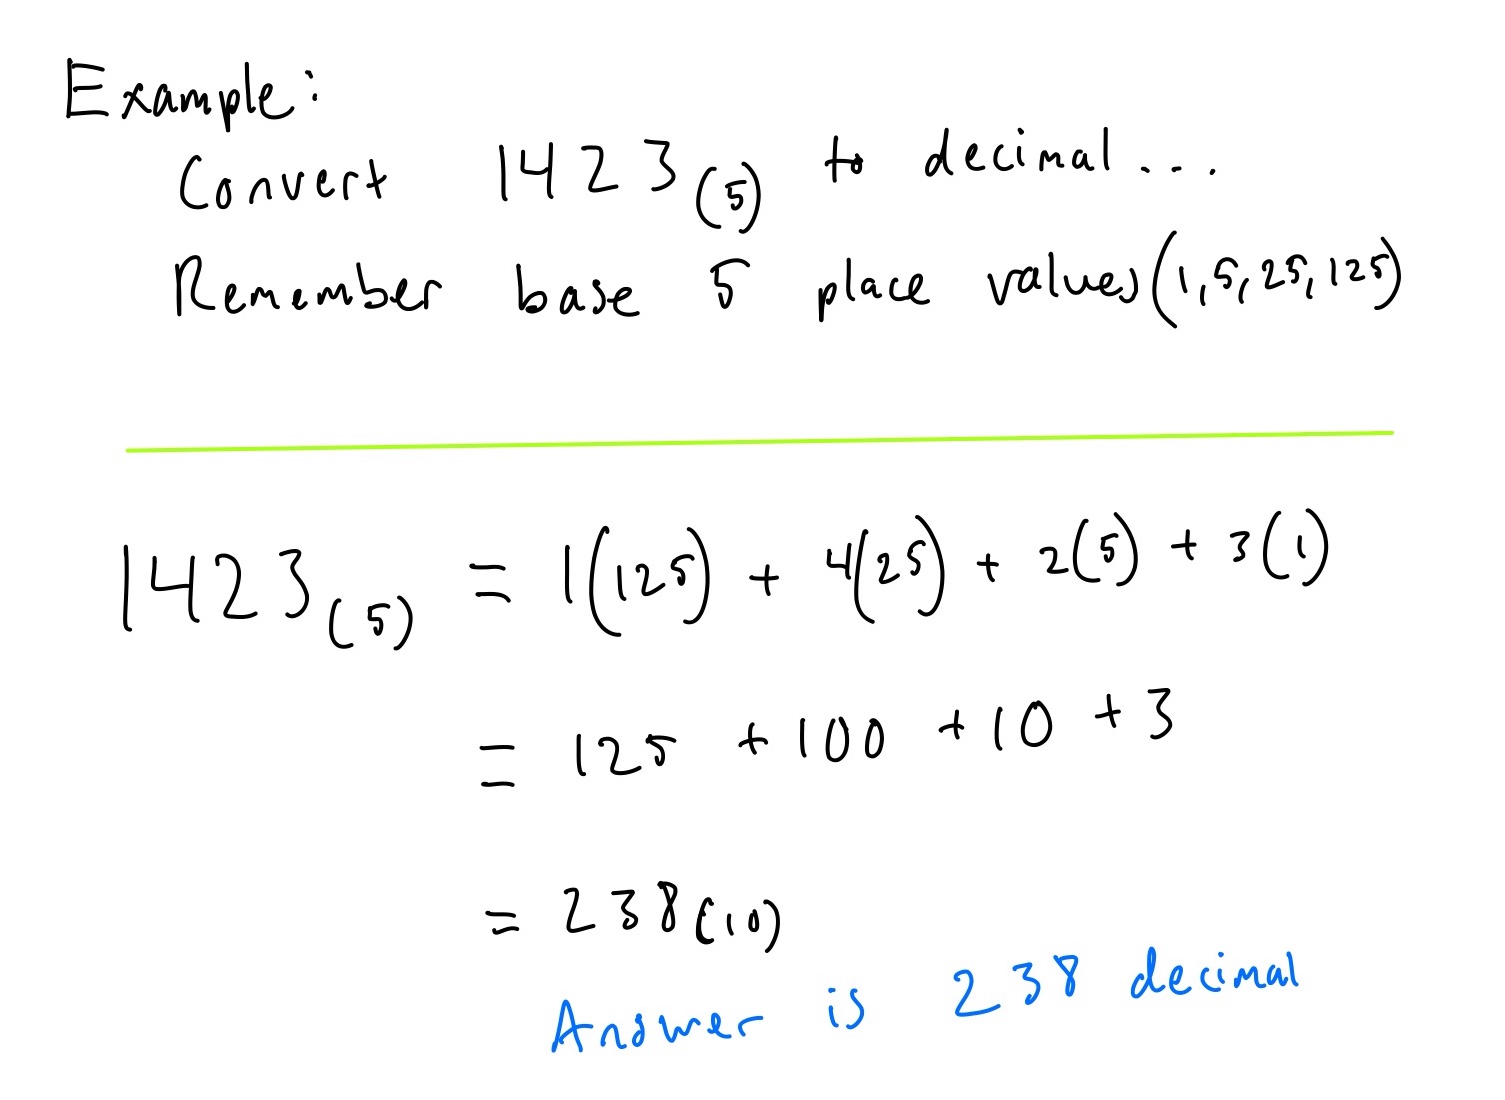 Example:
Convert 1423(5) to decimal...
Remember base 5 place values (1, 5, 25, 125)
1423(5) = 1(125) + 4(25) + 2(5) + 3(1)
= 125 + 100 + 10 + 3
= 238(10)
Answer is 238 decimal